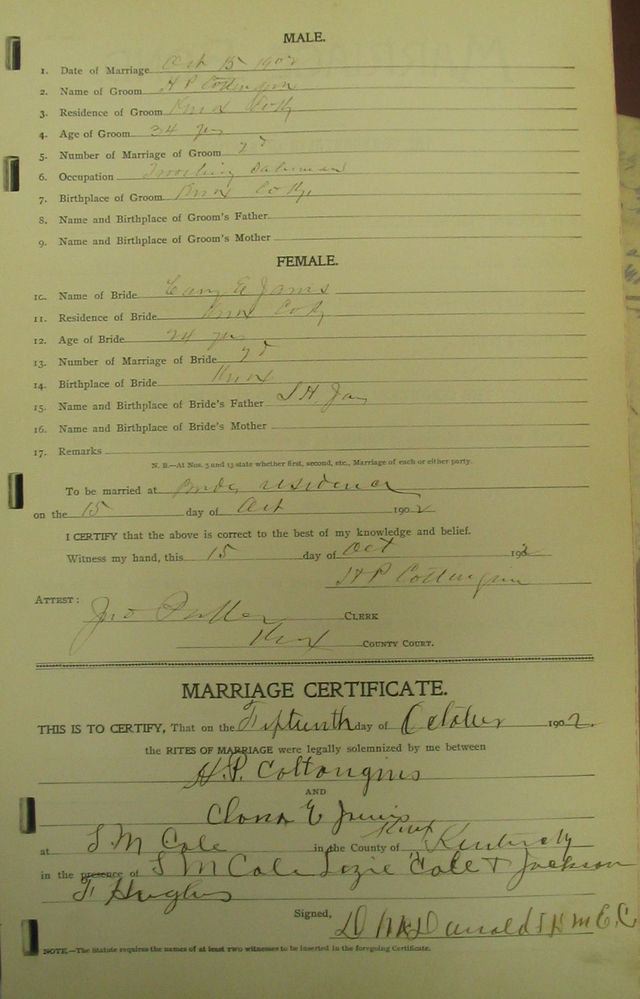 MALE.
1. Date of Marriage Oct 15 1902
2. Name of Groom H P Cottongim
3. Residence of Groom Knox Co Ky
4. Age of Groom 34 yrs
5. Number of Marriage of Groom 2d
6. Occupation Traveling Salesman
7. Birthplace of Groom Knox Co Ky,
8. Name and Birthplace of Groom's Father
9. Name and Birthplace of Groom's Mother
FEMALE.
10. Name of Bride E Jarvis
11. Residence of Bride Knox Co Ky
12. Age of Bride 24 yrs
13. Number of Marriage of Bride 2d
14. Birthplace of Bride Knox
15. Name and Birthplace of Bride's Father
16. Name and Birthplace of Bride's Mother
17. Remarks
N. B.—At Nos. 5 and 13 state whether first, second, etc., Marriage of each or either party.
To be married at Brides residence
on the 15 day of Oct 1902
I CERTIFY that the above is correct to the best of my knowledge and belief.
Witness my hand, this 15 day of Oct 1902
H P Cottongim
ATTEST: Jno CLERK
Knox COUNTY COURT.
MARRIAGE CERTIFICATE.
THIS IS TO CERTIFY, That on the Fifteenth day of October 1902.
the RITES OF MARRIAGE were legally solemnized by me between
H. P. Cottongims
AND
E Jarvis
at S M Cole in the County of Knox Kentucky
in the presence of S M Cole Lozie Cole & Jackson
F Hughes
Signed, D McDonald
NOTE—The Statute requires the names of at least TWO witnesses to be inserted in the foregoing Certificate.